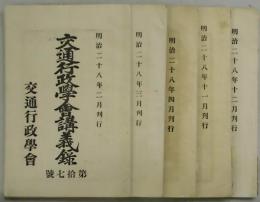 明治二十八年十二月刊行
明治二十八年十一月刊行
明治二十八年四月刊行
明治二十八年三月刊行
明治二十八年二月刊行
交通行政學會講義録
第拾七號
交通行政學會